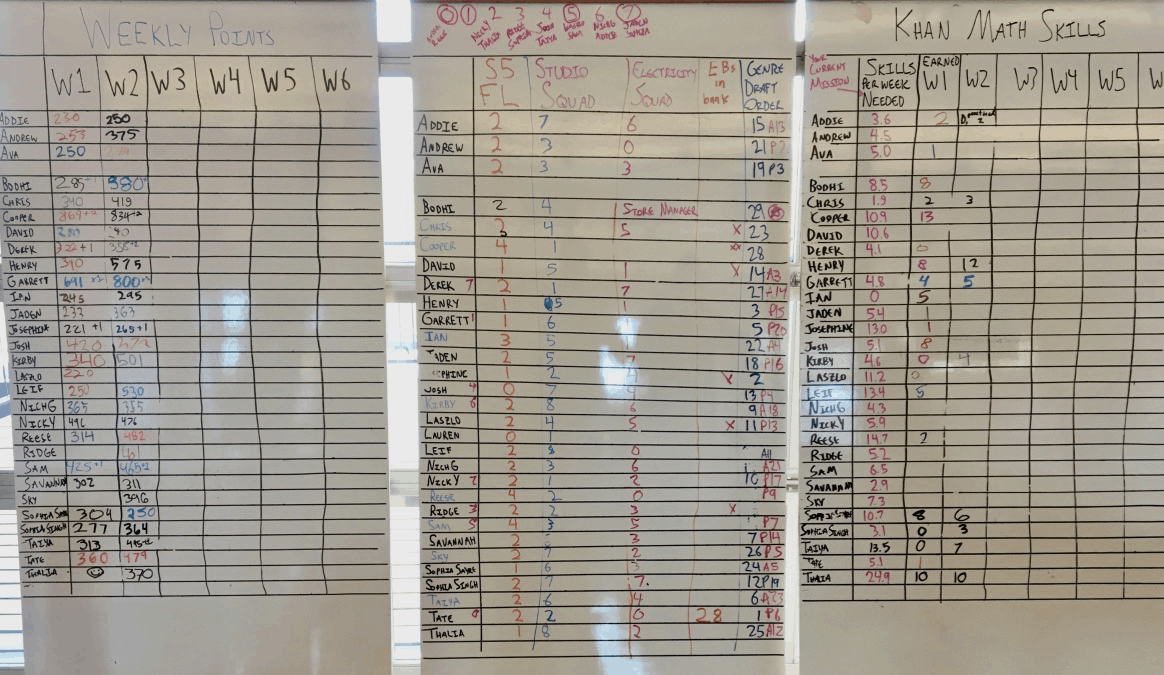 WEEKLY POINTS
W1 W2 W3 W4 W5 W6
ADDIE 230 250
ANDREW 253 375
AVA 250
BODHI 285 380
CHRIS 340 419
COOPER 869+2 834+2
DAVID
DEREK 322+1
HENRY 390 575
GARRETT 691 800
IAN 245 295
JADEN 233 363
JOSEPHINE 221+1 265+1
JOSH 420
KIRBY 340 501
LASZLO 220
LEIF 250 530
NICHG 365 355
NICKY 496 476
REESE 314 482
RIDGE 461
SAM 425+1 465+2
SAVANNAH 302 311
SKY 396
SOPHIA 304 250
SOPHIA SINGH 277 364
TAIYA 313
TATE 360 479
THALIA 370
0 1 2 3 4 5 6 7
NICKY THALIA SOPHIA JOSH TAIYA SAM NICHG ADDIE JADEN
S5 FL STUDIO SQUAD ELECTRICITY SQUAD EBs in bank GENRE DRAFT ORDER
ADDIE 2 7 6 15 A13
ANDREW 2 3 0 21 P2
AVA 2 3 3 19 P3
BODHI 2 4 STORE MANAGER 29
CHRIS 3 4 5 X 23
COOPER 4 1 XX 28
DAVID 1 5 1 X 14 A3
DEREK 7 2 1 7 27 A14
HENRY 1 5 1 3 P15
GARRETT 1 1 6 5 P20
IAN 3 5 22 A4
JADEN 2 5 7 18 P16
EPHINE 1 2 X 2
JOSH 4 0 7 13 P4
KIRBY 6 2 8 6 9 A18
LASZLO 2 4 5 X 11 P13
LAUREN 0 1
LEIF 2 8 0 A11
NICHG 2 3 6 A21
NICKY 2 1 2 10 P17
REESE 4 2 0 P9
RIDGE 3 2 2 3 X
SAM 5 4 3 5 P7
SAVANNAH 2 3 7 P14
SKY 2 2 26 P5
SOPHIA 1 6 24 A5
SOPHIA SINGH 2 7 7. 12 P19
TAIYA 2 6 4 6 A23
TATE 2 2 0 28 1 P6
THALIA 1 8 2 25 A12
KHAN MATH SKILLS
YOUR CURRENT MISSION
SKILLS PER WEEK NEEDED EARNED W1 W2 W3 W4 W5 W
ADDIE 3.6 2
ANDREW 4.5
AVA 5.0 1
BODHI 8.5 8
CHRIS 1.9 2 3
COOPER 10.9 13
DAVID 10.6
DEREK 4.1 0
HENRY 8 12
GARRETT 4.8 4 5
IAN 0 5
JADEN 5.4 1
JOSEPHINE 13.0 1
JOSH 5.1 8
KIRBY 4.6 0 4
LASZLO 11.2 0
LEIF 13.4 5
NICHG 4.3
NICKY 5.9
REESE 14.7 2
RIDGE 5.2
SAM 6.5
SAVANNAH 2.9
SKY 7.3
SOPHIA 10.7 8 6
SOPHIA SINGH 3.1 0 3
TAIYA 13.5 0 7
TATE 5.1 1
THALIA 24.9 10 10